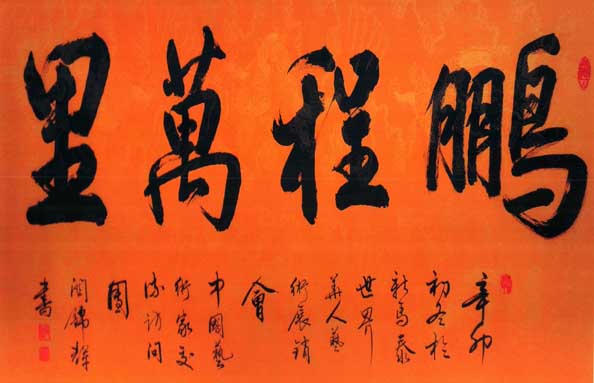 鵬程萬里
辛卯
初冬於
新馬泰
世界
華人藝
術展銷
會
中國藝
術家交
流訪問
團
錦輝
書